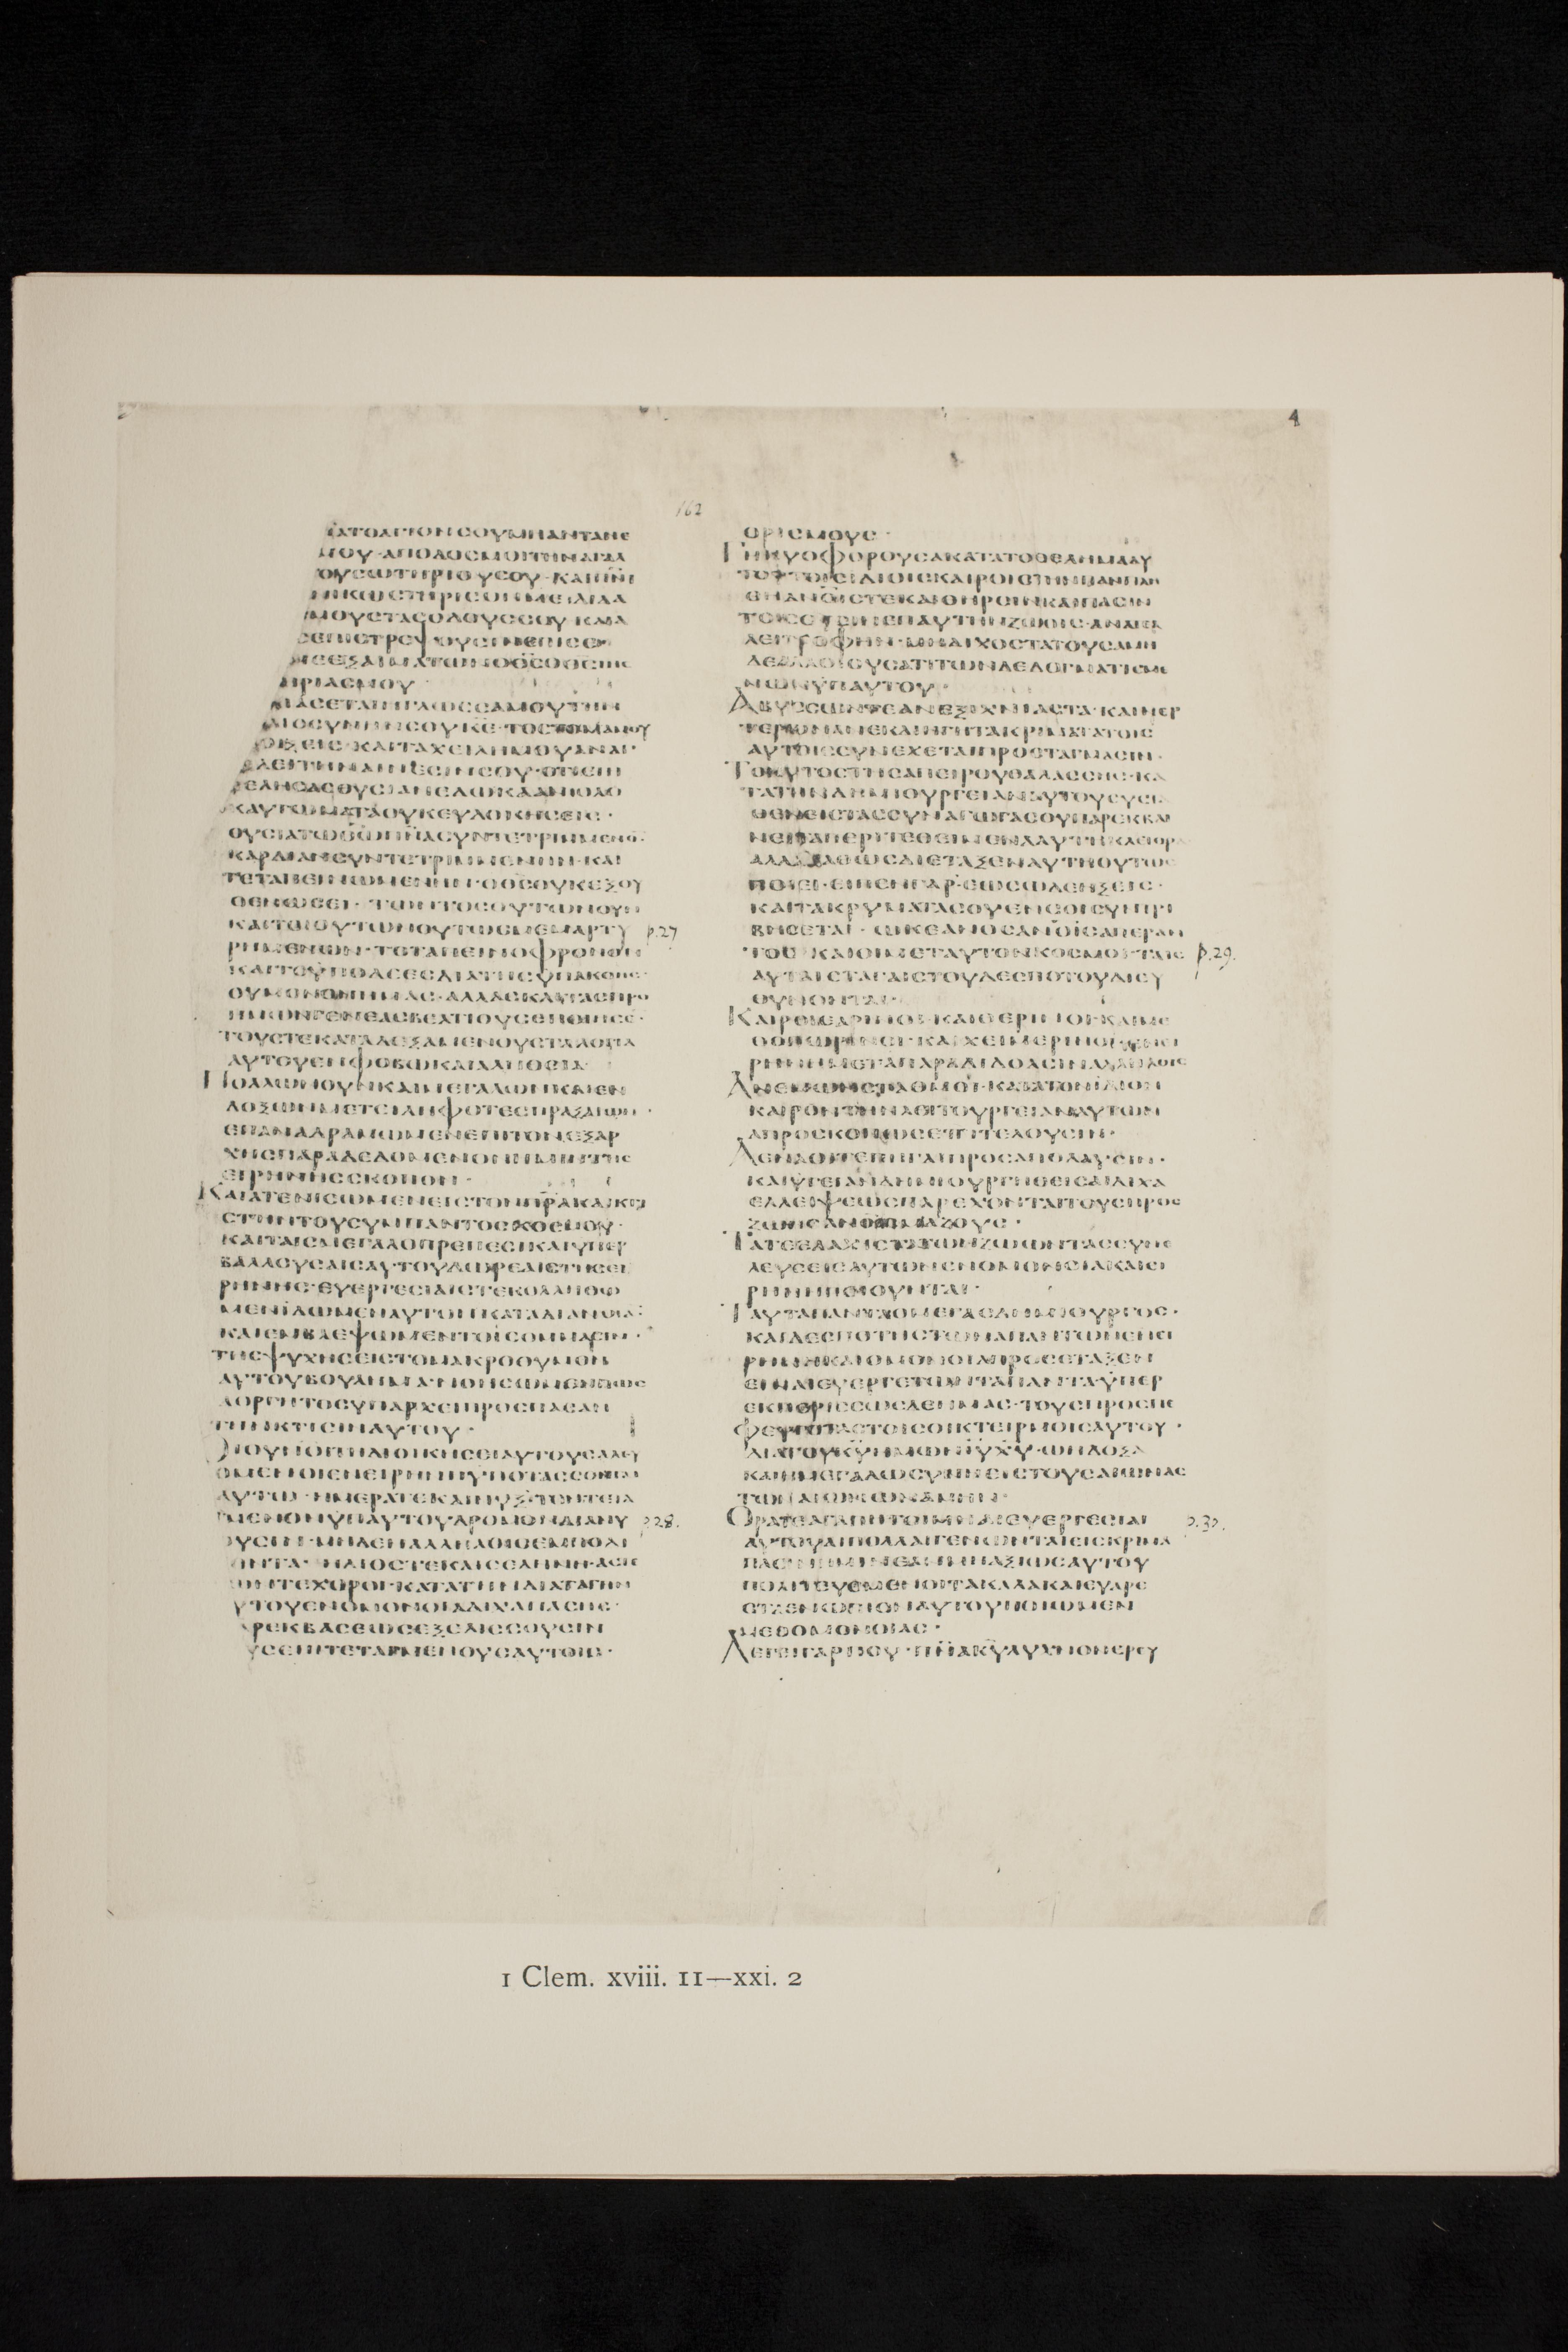 4
162
ΑΤΟΑΓΙΟΝϹΟΥΜΗΑΝΤΑΝΕ
ΜΟΥ·ΑΠΟΔΟϹΜΟΙΤΗΝΑΓΑΛ
ΟΥϹΩΤΗΡΙΟΥϹΟΥ·ΚΑΙΠΝΙ
ΝΙΚΩϹΤΗΡΙϹΟΝΜΕΔΙΔΑ
ΜΟΥϹΤΑϹΟΔΟΥϹϹΟΥΚΑΙΑ
ϹΕΠΙϹΤΡΕΨΟΥϹΙΝΕΠΙϹΕ
ΜΕΕΞΑΙΜΑΤΩΝΟΘϹΟΘϹΤΗϹ
ΗΡΙΑϹΜΟΥ
ΛΙΑϹΕΤΑΙΗΓΛΩϹϹΑΜΟΥΤΗΝ
ΑΙΟϹΥΝΗΝϹΟΥΚΕ·ΤΟϹΤΟΜΑΜΟΥ
ΟΙΞΕΙϹ·ΚΑΙΤΑΧΕΙΛΗΜΟΥΑΝΑΓ
ΕΛΕΙΤΗΝΑΙΝΕϹΙΝϹΟΥ·ΟΤΙΕΙΗ
ΘΕΛΗϹΑϹΘΥϹΙΑΝΕΔΩΚΑΑΝΟΛΟ
ΚΑΥΤΩΜΑΤΑΟΥΚΕΥΔΟΚΗϹΕΙϹ·
ΘΥϹΙΑΤΩΘΩΠΝΑϹΥΝΤΕΤΡΙΜΜΕΝΟ·
ΚΑΡΔΙΑΝϹΥΝΤΕΤΡΙΜΜΕΝΗΝ·ΚΑΙ
ΤΕΤΑΠΕΙΝΩΜΕΝΗΝ·ΟΘϹΟΥΚΕΞΟΥ
ΘΕΝΩϹΕΙ·ΤΩΝΤΟϹΟΥΤΩΝΟΥΝ
ΚΑΙΤΟΙΟΥΤΩΝΟΥΤΩϹΜΕΜΑΡΤΥ
p.27
ΡΗΜΕΝΩΝ·ΤΟΤΑΠΕΙΝΟΦΡΟΝΟΥΝ
ΚΑΙΤΟΫΠΟΔΕΕϹΔΙΑΤΗϹΫΠΑΚΟΗϹ·
ΟΥΜΟΝΟΝΗΜΑϹ·ΑΛΛΑϹΚΑΙΤΑϹΠΡΟ
ΗΜΩΝΓΕΝΕΑϹΒΕΛΤΙΟΥϹΕΠΟΙΗϹΕ·
ΤΟΥϹΤΕΚΑΤΑΔΕΞΑΜΕΝΟΥϹΤΑΛΟΓΙΑ
ΑΥΤΟΥΕΝΦΟΒΩΚΑΙΑΛΗΘΕΙΑ
ΠΟΛΛΩΝΟΥΝΚΑΙΜΕΓΑΛΩΝΚΑΙΕΝ
ΔΟΞΩΝΜΕΤΕΙΛΗΦΟΤΕϹΠΡΑΞΑΙΩΝ·
ΕΠΑΝΑΔΡΑΜΩΜΕΝΕΠΙΤΟΝΕΞΑΡ
ΧΗϹΠΑΡΑΔΕΔΟΜΕΝΟΝΗΜΙΝΤΗϹ
ΕΙΡΗΝΗϹϹΚΟΠΟΝ·
ΚΑΙΑΤΕΝΙϹΩΜΕΝΕΙϹΤΟΝΠΡΑΚΑΙΚΤΙ
ϹΤΗΝΤΟΥϹΥΜΠΑΝΤΟϹΚΟϹΜΟΥ·
ΚΑΙΤΑΙϹΜΕΓΑΛΟΠΡΕΠΕϹΙΚΑΙΫΠΕΡ
ΒΑΛΛΟΥϹΑΙϹΑΥΤΟΥΔΩΡΕΑΙϹΤΗϹΕΙ
ΡΗΝΗϹ·ΕΥΕΡΓΕϹΙΑΙϹΤΕΚΟΛΛΗΘΩ
ΜΕΝΪΔΩΜΕΝΑΥΤΟΝΚΑΤΑΔΙΑΝΟΙΑ·
ΚΑΙΕΜΒΛΕΨΩΜΕΝΤΟΙϹΟΜΜΑϹΙΝ·
ΤΗϹΨΥΧΗϹΕΙϹΤΟΜΑΚΡΟΘΥΜΟΝ
ΑΥΤΟΥΒΟΥΛΗΜΑ·ΝΟΗϹΩΜΕΝΠΩϹ
ΑΟΡΓΗΤΟϹΥΠΑΡΧΕΙΠΡΟϹΠΑϹΑΝ
ΤΗΝΚΤΙϹΙΝΑΥΤΟΥ·
ΟΙΟΥΝΟΙΤΗΔΙΟΙΚΗϹΕΙΑΥΤΟΥϹΑΛΕΥ
ΟΜΕΝΟΙΕΝΕΙΡΗΝΗΫΠΟΤΑϹϹΟΝΤΑΙ
ΑΥΤΩ·ΗΜΕΡΑΤΕΚΑΙΝΥΞΤΟΝΤΕΤΑ
ΓΜΕΝΟΝΫΠΑΥΤΟΥΔΡΟΜΟΝΔΙΑΝΥ
p.28.
ΟΥϹΙΝ·ΜΗΔΕΝΑΛΛΗΛΟΙϹΕΜΠΟΔΙ
ΟΝΤΑ·ΗΛΙΟϹΤΕΚΑΙϹΕΛΗΝΗ·ΑϹΤΕ
ΩΝΤΕΧΟΡΟΙ·ΚΑΤΑΤΗΝΔΙΑΤΑΓΗΝ
ΥΤΟΥΕΝΟΜΟΝΟΙΑΔΙΧΑΠΑϹΗϹ·
ΡΕΚΒΑϹΕΩϹΕΞΕΛΙϹϹΟΥϹΙΝ
ΥϹΕΠΙΤΕΤΑΓΜΕΝΟΥϹΑΥΤΟΙϹ·
ΟΡΙϹΜΟΥϹ·
ΓΗΚΥΟΦΟΡΟΥϹΑΚΑΤΑΤΟΘΕΛΗΜΑΑΥ
ΤΟΥΤΟΙϹΙΔΙΟΙϹΚΑΙΡΟΙϹΤΗΝΠΑΝΠΛΗ
ΘΗΑΝΟΙϹΤΕΚΑΙΘΗΡϹΙΝΚΑΙΠΑϹΙΝ
ΤΟΙϹΟΥϹΙΝΕΠΑΥΤΗΝΖΩΟΙϹ·ΑΝΑΤΕΛ
ΛΕΙΤΡΟΦΗΝ·ΜΗΔΙΧΟϹΤΑΤΟΥϹΑΜΗ
ΔΕΑΛΛΟΙΟΥϹΑΤΙΤΩΝΔΕΔΟΓΜΑΤΙϹΜΕ
ΝΩΝΫΠΑΥΤΟΥ·
ΑΒΥϹϹΩΝΤΕΑΝΕΞΙΧΝΙΑϹΤΑ·ΚΑΙΝΕΡ
ΤΕΡΩΝΑΝΕΚΔΙΗΓΗΤΑΚΡΙΜΑΤΑΤΟΙϹ
ΑΥΤΟΙϹϹΥΝΕΧΕΤΑΙΠΡΟϹΤΑΓΜΑϹΙΝ·
ΤΟΚΥΤΟϹΤΗϹΑΠΕΙΡΟΥΘΑΛΑϹϹΗϹ·ΚΑ
ΤΑΤΗΝΔΗΜΙΟΥΡΓΕΙΑΝΑΥΤΟΥϹΥϹΤΑ
ΘΕΝΕΙϹΤΑϹϹΥΝΑΓΩΓΑϹΟΥΠΑΡΕΚΒΑΙ
ΝΕΙΤΑΠΕΡΙΤΕΘΕΙΜΕΝΑΑΥΤΗΚΛΕΙΘΡΑ
ΑΛΛΑΚΑΘΩϹΔΙΕΤΑΞΕΝΑΥΤΗΟΥΤΩϹ
ΠΟΙΕΙ·ΕΙΠΕΝΓΑΡ·ΕΩϹΩΔΕΗΞΕΙϹ·
ΚΑΙΤΑΚΥΜΑΤΑϹΟΥΕΝϹΟΙϹΥΝΤΡΙ
ΒΗϹΕΤΑΙ·ΩΚΕΑΝΟϹΑΝΟΙϹΑΠΕΡΑΝ
ΤΟϹ·ΚΑΙΟΙΜΕΤΑΥΤΟΝΚΟϹΜΟΙ·ΤΑΙϹ
p.29.
ΑΥΤΑΙϹΤΑΓΑΙϹΤΟΥΔΕϹΠΟΤΟΥΔΙΕΥ
ΘΥΝΟΝΤΑΙ·
ΚΑΙΡΟΙΕΑΡΙΝΟΙ·ΚΑΙΘΕΡΙΝΟΙ·ΚΑΙΜΕ
ΘΟΠΩΡΙΝΟΙ·ΚΑΙΧΕΙΜΕΡΙΝΟΙΕΝΕΙ
ΡΗΝΗΜΕΤΑΠΑΡΑΔΙΔΟΑϹΙΝΑΛΛΗΛΟΙϹ
ΑΝΕΜΩΝϹΤΑΘΜΟΙ·ΚΑΤΑΤΟΝΪΔΙΟΝ
ΚΑΙΡΟΝΤΗΝΛΕΙΤΟΥΡΓΕΙΑΝΑΥΤΩΝ
ΑΠΡΟϹΚΟΠΩϹΕΠΙΤΕΛΟΥϹΙΝ·
ΑΕΝΑΟΙΤΕΠΗΓΑΙΠΡΟϹΑΠΟΛΑΥϹΙΝ·
ΚΑΙΫΓΕΙΑΝΔΗΜΙΟΥΡΓΗΘΕΙϹΑΙΔΙΧΑ
ΕΛΛΕΙΨΕΩϹΠΑΡΕΧΟΝΤΑΙΤΟΥϹΠΡΟϹ
ΖΩΗϹΑΝΟΙϹΜΑΖΟΥϹ·
ΤΑΤΕΕΛΑΧΙϹΤΑΤΩΝΖΩΩΝΤΑϹϹΥΝΕ
ΛΕΥϹΕΙϹΑΥΤΩΝΕΝΟΜΟΝΟΙΑΚΑΙΕΙ
ΡΗΝΗΠΟΙΟΥΝΤΑΙ·
ΤΑΥΤΑΠΑΝΤΑΟΜΕΓΑϹΔΗΜΙΟΥΡΓΟϹ·
ΚΑΙΔΕϹΠΟΤΗϹΤΩΝΑΠΑΝΤΩΝΕΝΕΙ
ΡΗΝΗΚΑΙΟΜΟΝΟΙΑΠΡΟϹΕΤΑΞΕΝ
ΕΙΝΑΙΕΥΕΡΓΕΤΩΝΤΑΠΑΝΤΑ·ΫΠΕΡ
ΕΚΠΕΡΙϹϹΩϹΔΕΗΜΑϹ·ΤΟΥϹΠΡΟϹΠΕ
ΦΕΥΓΟΤΑϹΤΟΙϹΟΙΚΤΕΙΡΜΟΙϹΑΥΤΟΥ·
ΔΙΑΤΟΥΚΥΗΜΩΝΙΥΧΥ·ΩΗΔΟΞΑ
ΚΑΙΗΜΕΓΑΛΩϹΥΝΗΕΙϹΤΟΥϹΑΙΩΝΑϹ
ΤΩΝΑΙΩΝΩΝΑΜΗΝ·
ΟΡΑΤΕΑΓΑΠΗΤΟΙΜΗΑΙΕΥΕΡΓΕϹΙΑΙ
p.30.
ΑΥΤΟΥΑΙΠΟΛΛΑΙΓΕΝΩΝΤΑΙΕΙϹΚΡΙΜΑ
ΠΑϹΙΝΗΜΙΝΕΑΝΜΗΑΞΙΩϹΑΥΤΟΥ
ΠΟΛΙΤΕΥΟΜΕΝΟΙΤΑΚΑΛΑΚΑΙΕΥΑΡΕ
ϹΤΑΕΝΩΠΙΟΝΑΥΤΟΥΠΟΙΩΜΕΝ
ΜΕΘΟΜΟΝΟΙΑϹ·
ΛΕΓΕΙΓΑΡΠΟΥ·ΠΝΑΚΥΛΥΧΝΟΝΕΡΕΥ
1 Clem. xviii. 11—xxi. 2